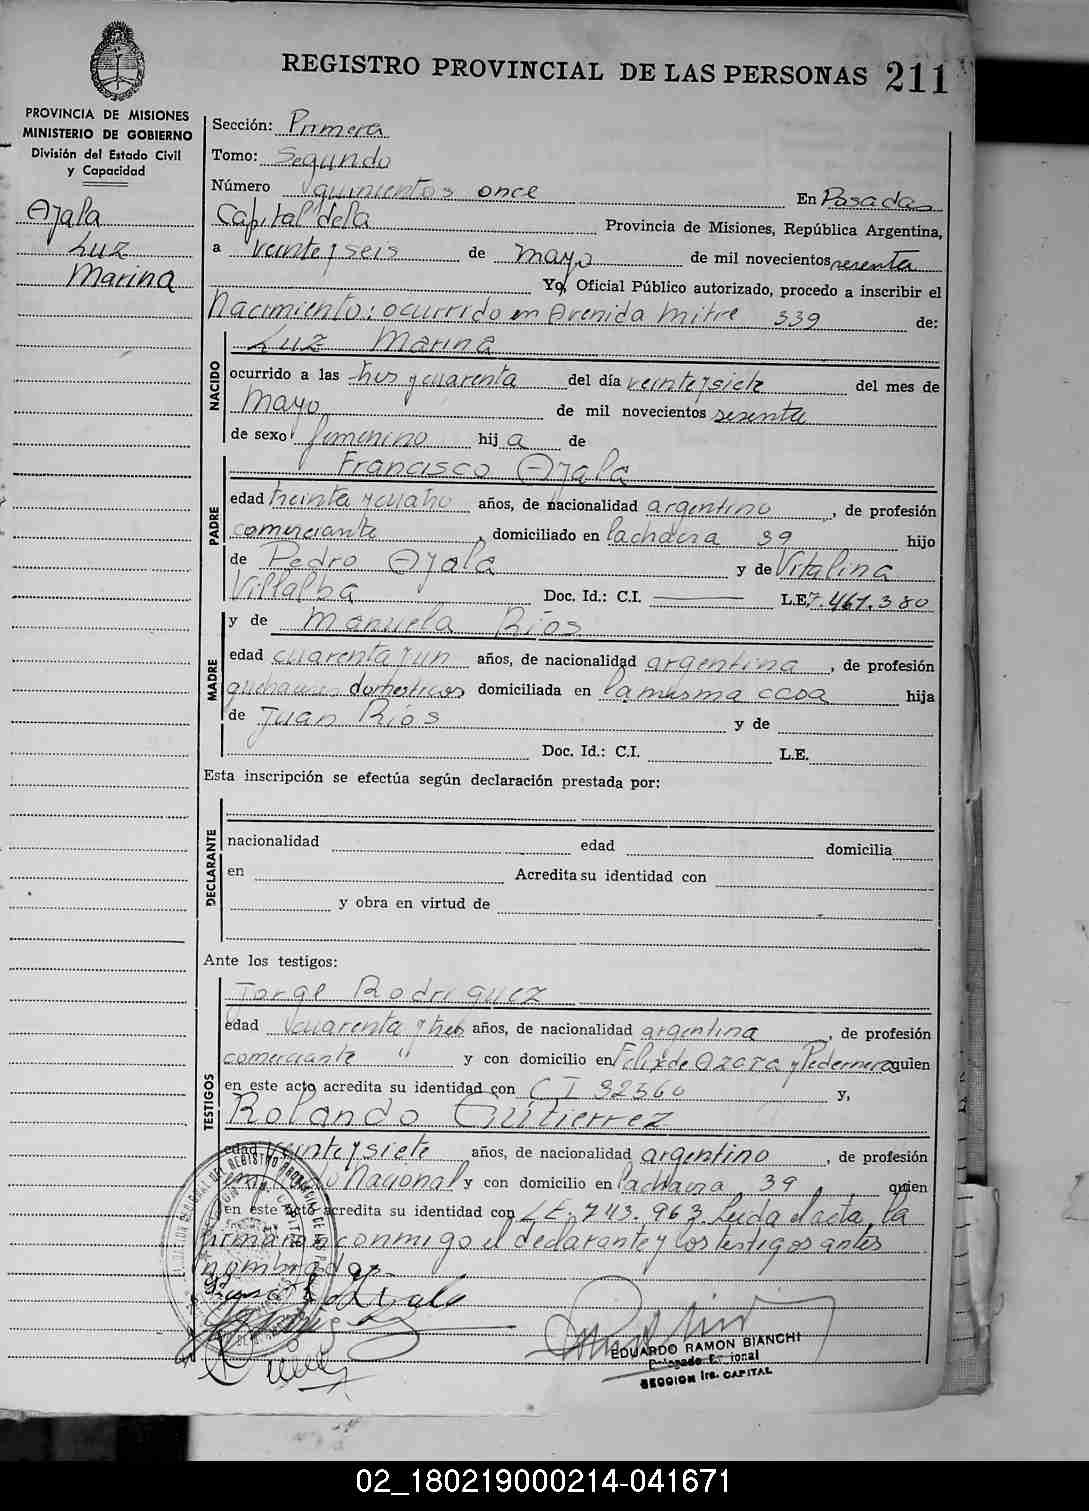 REGISTRO PROVINCIAL DE LAS PERSONAS 211
PROVINCIA DE MISIONES
MINISTERIO DE GOBIERNO
División del Estado Civil
y Capacidad
Ayala
Luz
Marina
Sección: Primera
Tomo: Segundo
Número quinientos once En Posadas
Capital dela Provincia de Misiones, República Argentina,
a veinte y seis de mayo de mil novecientos sesenta
Yo, Oficial Público autorizado, procedo a inscribir el
Nacimiento: ocurrido en Avenida Mitre 339 de:
NACIDO
Luz Marina
ocurrido a las tres y cuarenta del día veinte y siete del mes de
Mayo de mil novecientos sesenta
de sexo femenino hij a de
PADRE
Francisco Ayala
edad treinta y cuatro años, de nacionalidad argentino, de profesión
comerciante, domiciliado en lachacra 39 hijo
de Pedro Ayala y de Vitalina
Villalba Doc. Id.: C.I. L.E. 7.461.380
MADRE
y de Manuela Ríos
edad cuarenta y un años, de nacionalidad argentina, de profesión
quehaceres domésticos domiciliada en la misma casa hija
de Juan Ríos y de
Doc. Id.: C.I. L.E.
Esta inscripción se efectúa según declaración prestada por:
DECLARANTE
nacionalidad edad domicilia
en Acredita su identidad con
y obra en virtud de
Ante los testigos:
TESTIGOS
Jorge Rodriguez
edad cuarenta y tres años, de nacionalidad argentina, de profesión
comerciante " y con domicilio en Felix de Azara y Pedernera quien
en este acto acredita su identidad con C I 32560 y,
Rolando Gutierrez
edad veinte y siete años, de nacionalidad argentino, de profesión
Nacional y con domicilio en lachacra 39 quien
en este acto acredita su identidad con L.E. 743.963. Leida el acta, la
firmaran conmigo el declarante y los testigos antes
nombrados-
EDUARDO RAMON BIANCHI
SECCION 1ra. CAPITAL
02_180219000214-041671